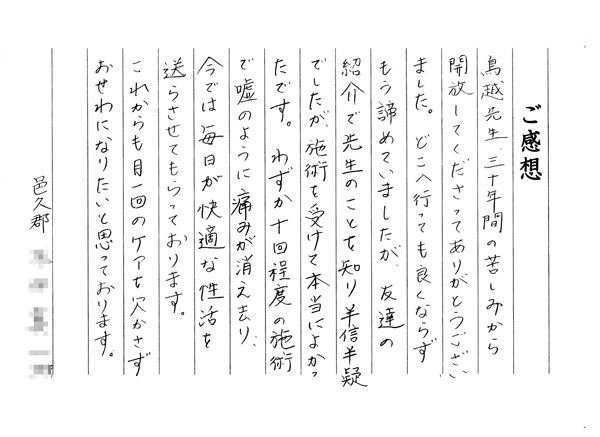 ご感想
鳥越先生、三十年間の苦しみから
開放してくださってありがとうござい
ました。どこへ行っても良くならず
もう諦めていましたが、友達の
紹介で先生のことを知り半信半疑
でしたが、施術を受けて本当によかっ
たです。わずか十回程度の施術
で嘘のように痛みが消え去り、
今では毎日が快適な性活を
送らさせてもらっております。
これからも月一回のケアを欠かさず
おせわになりたいと思っております。
邑久郡